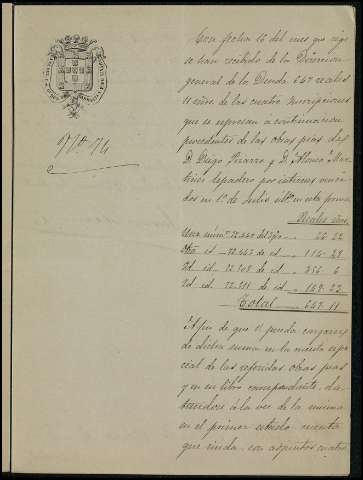 Con fecha 16 del mes que rige
se han recibido de la Direccion
general de la Deuda 647 reales
11 cénts. de las cuatro inscripciones
que se expresan a continuacion
procedentes de las obras pias de
D. Diego Pizarro y D. Alonso Mar
tinez Espadero por intereses venci
dos en 1º de Julio últº en esta forma
Reales cénts.
Una núm.º 72.440 del 3 p%
otra id. 72.445 de id. 114. 29
Id id 72.708 de id. 356. 6
Id id 72.711 de id.
Total 647. 11
A fin de que se pueda cargar
de dicha suma en la cuenta espe
cial de las referidas obras pias
y en su libro correspondiente, da
tandose á la vez de la misma
en el primer estado cuenta
que rinda, con adjuntos cuatro